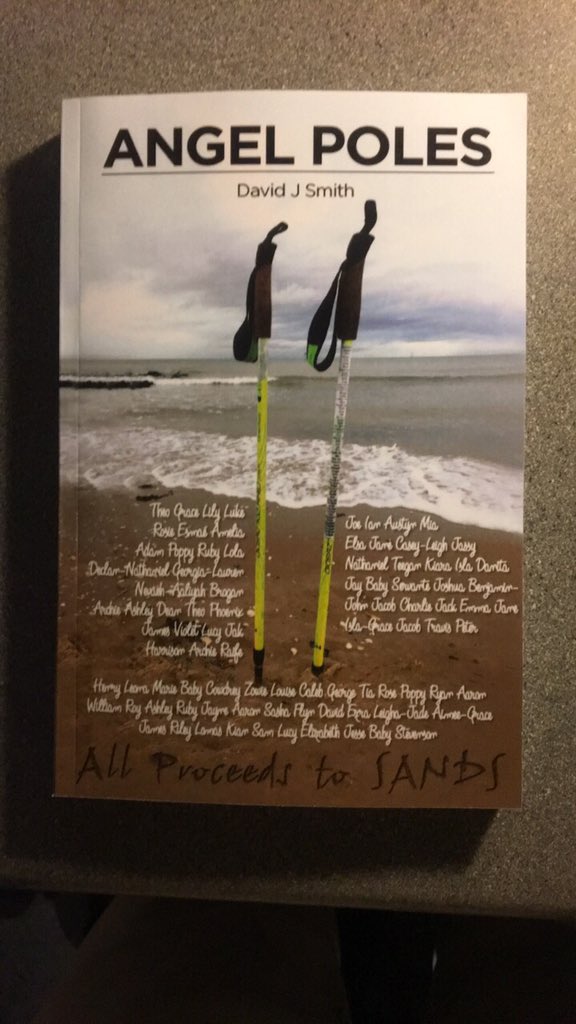 ANGEL POLES
David J Smith
Theo Grace Lily Luke
Rosie Esmaé Amelia
Adam Poppy Ruby Lola
Declan-Nathaniel Georgia-Lauren
Nevaeh-Aaliyah Brogan
Archie Ashley Dean Theo Phoenix
James Violet Lucy Jak
Harrison Archie Raife
Joe Ian Austyn Mia
Elsa Jane Casey-Leigh Jassy
Nathaniel Teegan Kiara Isla Danita
Jay Baby Servante Joshua Benjamin-
John Jacob Charlie Jack Emma Jane
Isla-Grace Jacob Travis Peter
Henry Leona Marie Baby Cowdrey Zowie Louise Caleb George Tia Rose Poppy Ryan Aaron
William Roy Ashley Ruby Jayne Aaron Sasha Flyn David Ezra Leigha-Jade Aimee-Grace
James Riley Lomas Kian Sam Lucy Elizabeth Jesse Baby Stevenson
All Proceeds to SANDS